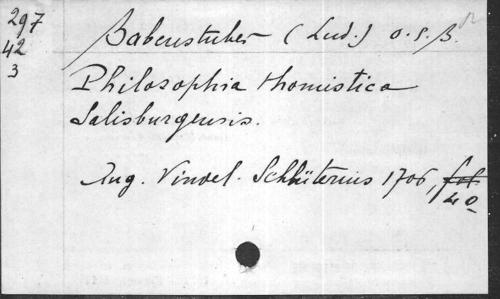 297
42
3
Babenstuber (Lud.) o.s.B.
Philosophia thomistica
Salisburgensis.
Aug. Vindel. Schlüterus 1706, fol
4o